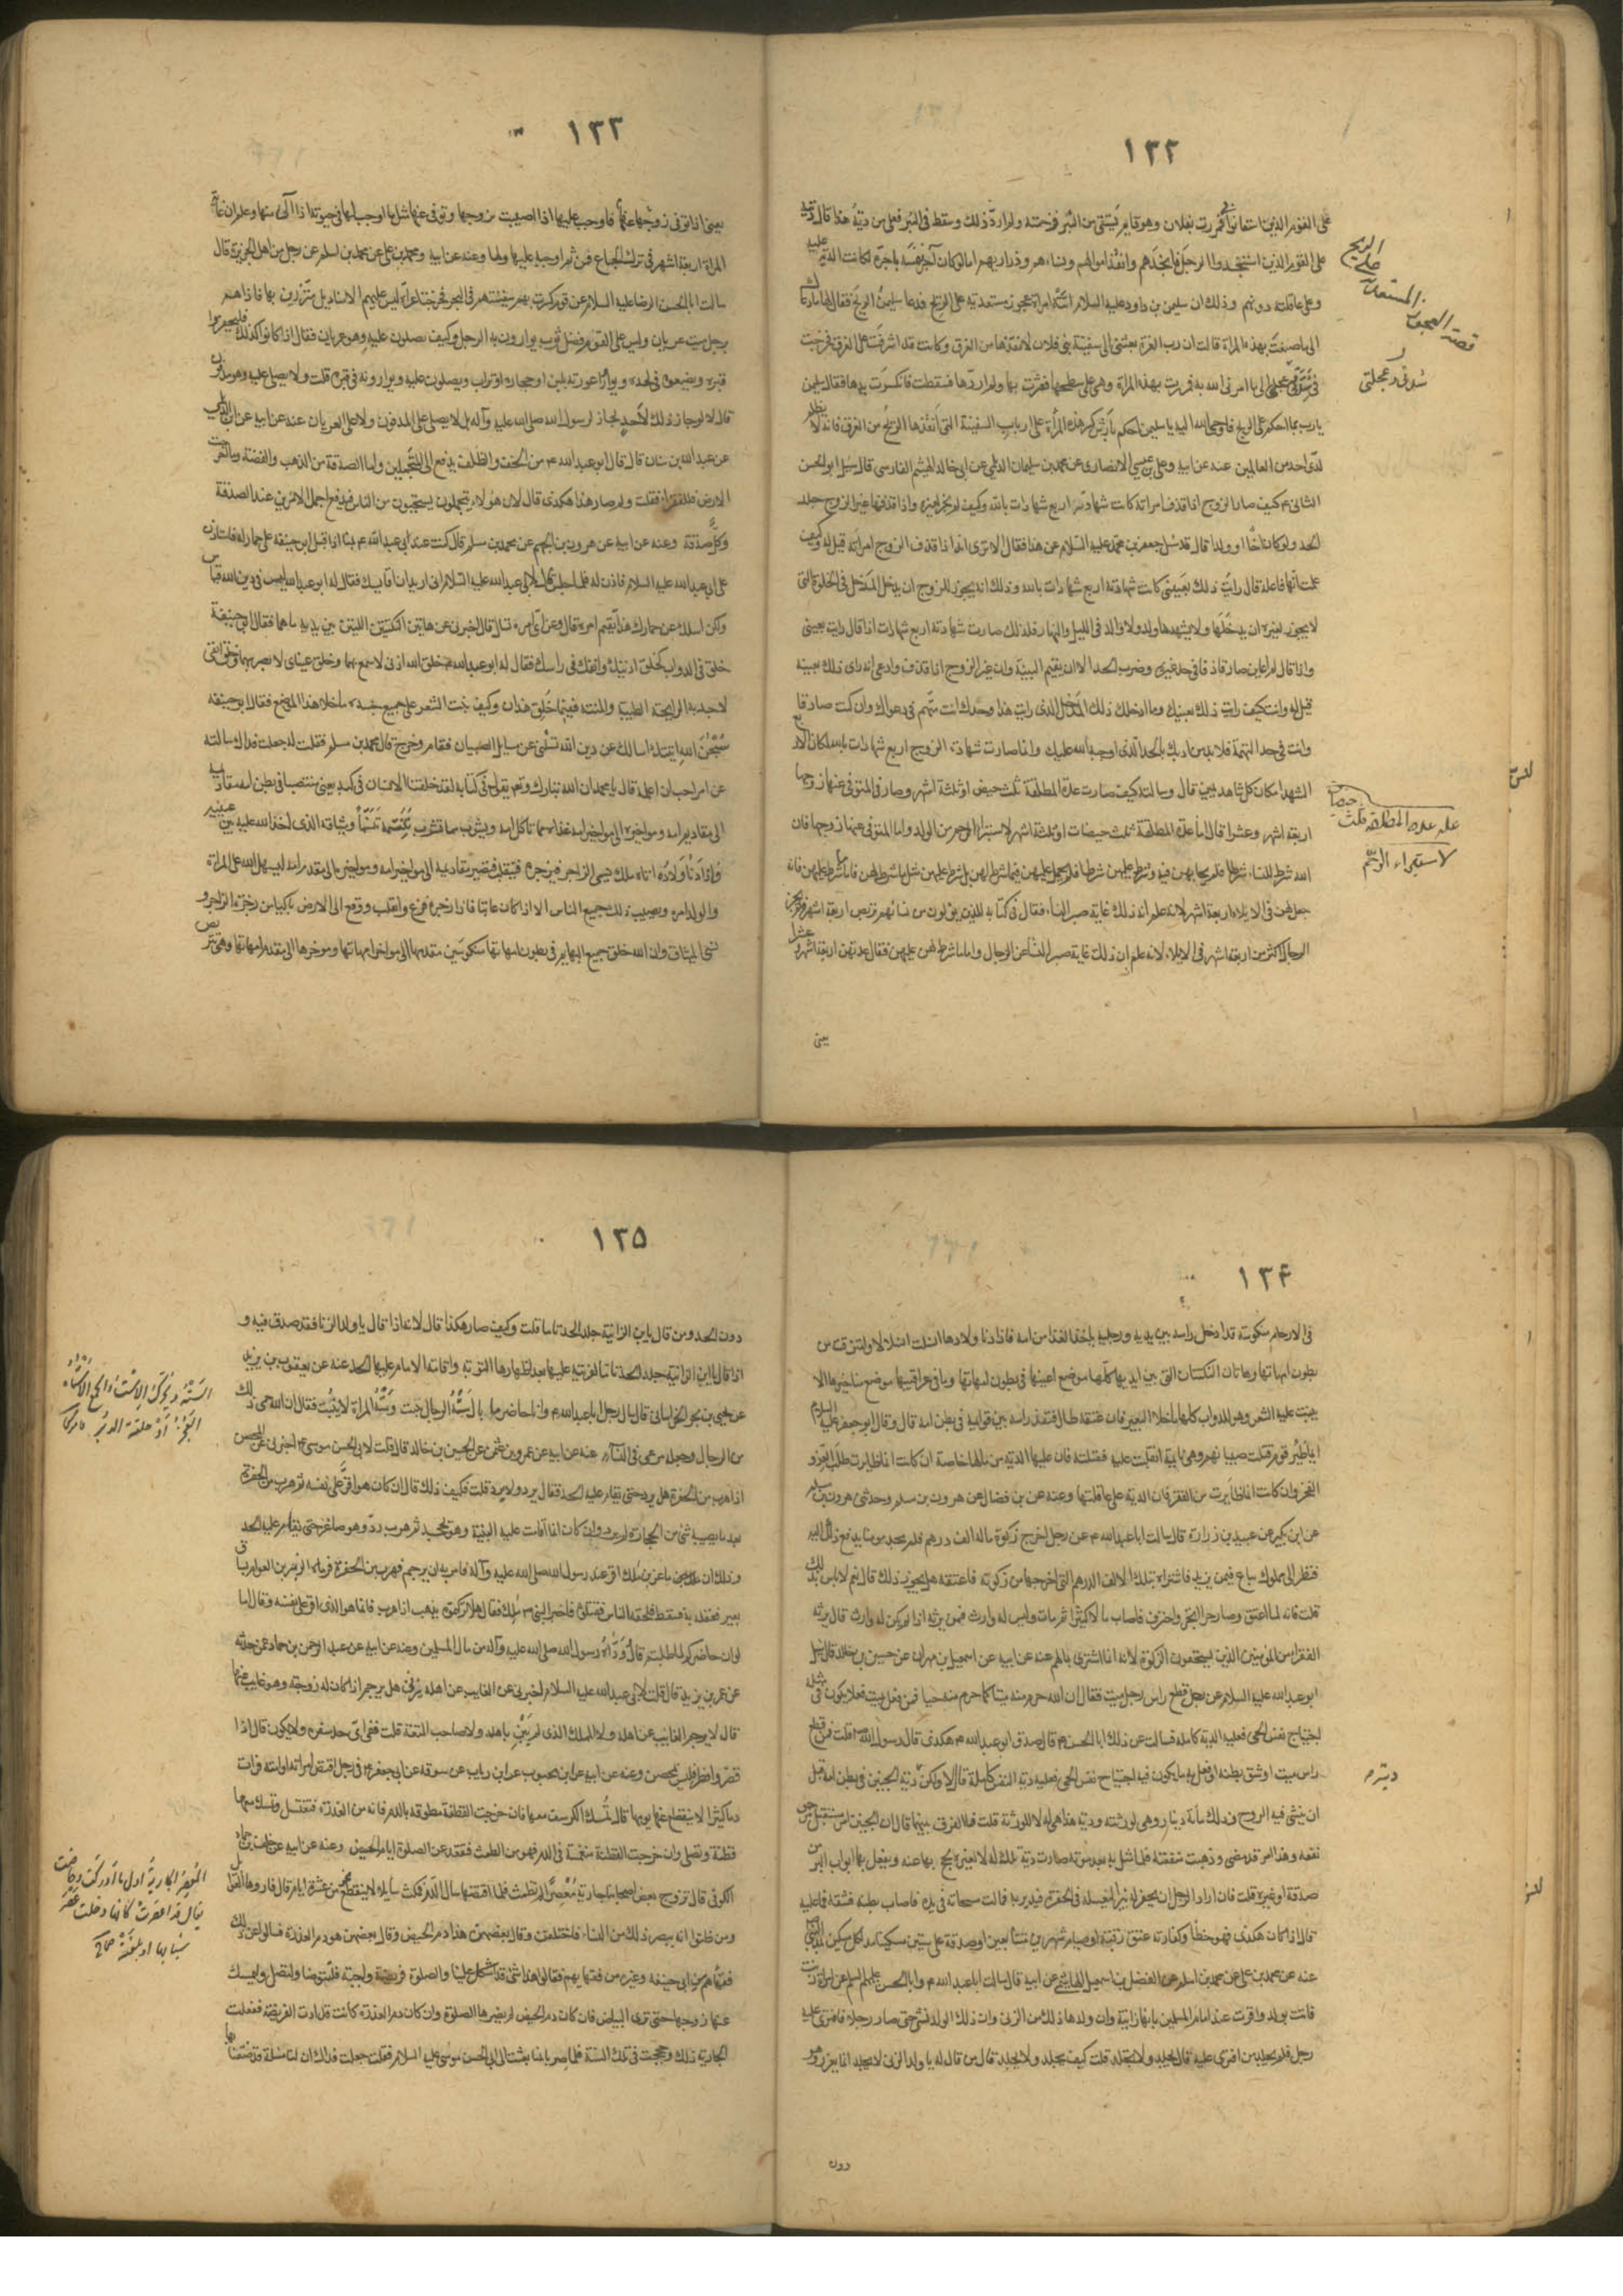 ١٣٢
على القوم الذين استغاثوا فمررت بفلان وهو قايم يستقى من البئر فزحمته ولم ارد ذلك وسقط فى البئر فعلى من دية هذا قال ديته
على القوم الذين استنجدوا الرجل فانجدهم وانقذ اموالهم ونساءهم وذراريهم اما لو كان آجر نفسه باجرة لكانت الدية عليه
وعلى عاقلته دونهم وذلك ان سليمن بن داود عليه السلام اتته امراة عجوز مستعدية على الريح فدعا سليمن الريح فقال لها ما دعاك
الى ما صنعت بهذه المراة قالت ان رب العزة بعثنى الى سفينة بنى فلان لانقذها من الغرق وكانت قد اشرفت على الغرق فخرجت
فى سنتى وعجلتى الى ما امرنى الله به فمررت بهذه المراة وهى على سطحها فعثرت بها ولم اردها فسقطت فانكسرت يدها فقال سليمن
يا رب بما احكم على الريح فاوحى الله اليه يا سليمن احكم بارش كسر هذه المراة على ارباب السفينة التى انقذتها الريح من الغرق فانه لا يظلم
لدى احد من العالمين عنه عن ابيه وعلى بن عيسى الانصارى عن محمد بن سليمان الديلمى عن ابى خالد الهيثم الفارسى قال سئل ابو الحسن
الثانى ع كيف صار الزوج اذا قذف امراته كانت شهادته اربع شهادات بالله وكيف لم يجز لغيره واذا قذفها غير الزوج جلد
الحد ولو كان اخا او ولدا قال قد سئل جعفر بن محمد عليه السلام عن هذا فقال الا ترى انه اذا قذف الزوج امراته قيل له وكيف
علمت انها فاعلة قال رايت ذلك بعينى كانت شهادته اربع شهادات بالله وذلك انه يجوز للزوج ان يدخل المدخل فى الخلوة التى
لا يجوز لغيره ان يدخلها ولا يشهدها ولد ولا والد فى الليل والنهار فلذلك صارت شهادته اربع شهادات اذا قال رايت بعينى
واذا قال لم اعاين صار قاذفا فى حد غيره وضرب الحد الا ان يقيم البينة وان غير الزوج اذا قذف وادعى انه راى ذلك بعينه
قيل له وانت كيف رايت ذلك بعينك وما ادخلك ذلك المدخل الذى رايت هذا وحدك انت متهم فى دعواك وان كنت صادقا
وانت فى حد التهمة فلا بد من ادبك بالحد الذى اوجبه الله عليك وانما صارت شهادة الزوج اربع شهادات بالله لمكان الاربع
الشهداء مكان كل شاهد يمين قال وسالته كيف صارت عدة المطلقة ثلث حيض او ثلثة اشهر وصار فى المتوفى عنها زوجها
اربعة اشهر وعشرا قال اما عدة المطلقة ثلث حيضات او ثلثة اشهر لاستبراء الرحم من الولد واما المتوفى عنها زوجها فان
الله شرط للنساء شرطا فلم يحابهن فيه وشرط عليهن شرطا فلم يحمل عليهن فيما شرط لهن بل شرط عليهن مثل ما شرط لهن فاما ما شرط لهن فانه
جعل لهن فى الايلاء اربعة اشهر لانه علم ان ذلك غاية صبر النساء فقال فى كتابه للذين يؤلون من نسائهم تربص اربعة اشهر فلم يجز
الرجال اكثر من اربعة اشهر فى الايلاء لانه علم ان ذلك غاية صبر النساء عن الرجال واما ما شرط لهن عليهن فقال عدتهن اربعة اشهر وعشرا
يعنى
قصة العجوز المستعدية على الريح
علة عدة المطلقة ثلث حيضات
لاستبراء الرحم
١٣٣
يعنى اذا توفى زوجها عنها فاوجب عليها اذا اصيبت بزوجها وتوفى عنها مثل ما اوجب لها فى حيوته اذا آلى منها وعلم ان غاية
المراة اربعة اشهر فى ترك الجماع فمن ثم اوجبه عليها ولها وعنه عن ابيه ومحمد بن على عن محمد بن اسلم عن رجل من اهل الجزيرة قال
سالت ابا الحسن الرضا عليه السلام عن قوم كسرت بهم سفينتهم فى البحر فخرجوا عراة ليس عليهم الا مناديل متزرين بها فاذا هم
برجل ميت عريان وليس على القوم فضل ثوب يوارون به الرجل وكيف يصلون عليه وهو عريان فقال اذا كانوا كذلك فليحفروا
قبره ويضعوه فى لحده ويواروا عورته بلبن او حجارة او تراب ويصلون عليه ويوارونه فى قبره قلت ولا يصلى عليه وهو مدفون
قال لا لو جاز ذلك لاحد لجاز لرسول الله صلى الله عليه وآله بل لا يصلى على المدفون ولا على العريان عنه عن ابيه عن
عن عبد الله بن سنان قال قال ابو عبد الله ع من الخف والظلف يدفع الى المتجملين واما الصدقة من الذهب والفضة وما اخرجت
الارض فللفقراء فقلت ولم صار هذا هكذى قال لان هؤلاء يتجملون يستحيون من الناس فيدفع اجمل الامرين عند الصدقة
وكل صدقة وعنه عن ابيه عن هرون بن الجهم عن محمد بن مسلم قال كنت عند ابى عبد الله ع بمنا اذ اقبل ابو حنيفة على حمار له فاستاذن
على ابى عبد الله عليه السلام فاذن له فلما جلس قال لابى عبد الله عليه السلام انى اريد ان اقايسك فقال له ابو عبد الله ليس فى دين الله قياس
ولكن اسئلك عن حمارك هذا فيم امره قال وعن اى امره تسال قال اخبرنى عن هاتين النكتتين اللتين بين يديه ما هما فقال ابو حنيفة
خلق فى الدواب كخلق اذنيك وانفك فى راسك فقال له ابو عبد الله خلق الله اذنى لاسمع بهما وخلق عيناى لابصر بهما وخلق انفى
لاجد به الرايحة الطيبة والمنتنة ففيما خلق هذان وكيف نبت الشعر على جميع جسده ما خلا هذا الموضع فقال ابو حنيفة
سبحن الله اتيتك اسالك عن دين الله تسئلنى عن مسايل الصبيان فقام وخرج قال محمد بن مسلم فقلت له جعلت فداك سالته
عن امر احب ان اعلمه قال يا محمد ان الله تبارك وتعالى يقول فى كتابه لقد خلقنا الانسان فى كبد يعنى منتصبا فى بطن امه مقاديمه
الى مقاديم امه ومواخيره الى مواخير امه غذاه مما تاكل امه ويشرب مما تشرب تنسمه تنسما وميثاقه الذى اخذ الله عليه بين عينيه
واذا دنا ولاده اتاه ملك يسمى الزاجر فيزجره فينقلب فتصير مقاديمه الى مواخير امه ومواخيره الى مقدم امه ليسهل الله على المراة
والولد امره ويصيب ذلك جميع الناس الا اذا كان عاتيا فاذا زجره فزع وانقلب ووقع الى الارض باكيا من زجرة الزاجر و
نسى الميثاق وان الله خلق جميع البهايم فى بطون امهاتها منكوسين مقدمها الى مواخر امهاتها وموخرها الى مقدم امهاتها وهى تتربص
١٣٤
فى الارحام منكوسة قد ادخل راسه بين يديه ورجليه ياخذ الغذا من امه فاذا دنا ولادها انسلت انسلالا وامترقت من
بطون امهاتها وهاتان النكتتان التى بين ايديها كلها موضع اعينها فى بطون امهاتها وما فى عراقيبها موضع مناخيرها لا
ينبت عليه الشعر وهو للدواب كلها ما خلا البعير فان عنقه طال فنفذ راسه بين قوايمه فى بطن امه قال وقال ابو جعفر عليه السلام
ايما ظئر قوم قتلت صبيا لهم وهى نايمة انقلبت عليه فقتلته فان عليها الدية من مالها خاصة ان كانت انما ظايرت طلب العز و
الفخر وان كانت انما ظايرت من الفقر فان الدية على عاقلتها وعنه عن بن فضال عن هرون بن مسلم وحدثنى هرون بن مسلم
عن ابن بكير عن عبيد بن زرارة قال سالت ابا عبد الله ع عن رجل اخرج زكوة ماله الف درهم فلم يجد مومنا يدفع ذلك اليه
فنظر الى مملوك يباع فيمن يزيد فاشتراه بتلك الالف الدرهم التى اخرجها من زكوته فاعتقه هل يجوز ذلك قال نعم لا باس بذلك
قلت فانه لما اعتق وصار حرا اتجر واحترف فاصاب مالا كثيرا ثم مات وليس له وارث فمن يرثه اذا لم يكن له وارث قال يرثه
الفقراء من المومنين الذين يستحقون الزكوة لانه انما اشترى بمالهم عنه عن ابيه عن اسمعيل بن مهران عن حسين بن خالد قال سئل
ابو عبد الله عليه السلام عن رجل قطع راس رجل ميت فقال ان الله حرم منه ميتا كما حرم منه حيا فمن فعل بميت فعلا يكون فى مثله
اجتياح نفس الحى فعليه الدية كاملة فسالت عن ذلك ابا الحسن ع قال صدق ابو عبد الله ع هكذى قال رسول الله ص قلت فمن قطع
راس ميت او شق بطنه او فعل به ما يكون فيه اجتياح نفس الحى فعليه دية النفس كاملة قال لا ولكن دية دية الجنين فى بطن امه قبل
ان ينشى فيه الروح وذلك مأة دينار وهى لورثته ودية هذا هى له لا للورثة قلت فما الفرق بينهما قال ان الجنين امر مستقبل مرجو
نفعه وهذا امر قد مضى وذهبت منفعته فلما مثل به بعد موته صارت دية تلك له لا لغيره يحج بها عنه ويفعل بها ابواب البر من
صدقة او غيره قلت فان اراد الرجل ان يحفر له بئرا ليغسله فى الحفرة فيدير به فمالت مسحاته فى يده فاصاب بطنه فشقه فما عليه
قال اذا كان هكذى فهو خطا وكفارته عتق رقبة او صيام شهرين متتابعين او صدقة على ستين مسكينا مد لكل مسكين بمد النبى
عنه عن محمد بن على عن محمد بن اسلم عن الفضل بن اسمعيل الهاشمى عن ابيه قال سالت ابا عبد الله ع وابا الحسن عليهم السلم عن امراة زنت
فاتت بولد واقرت عند امام المسلمين بانها زانية وان ولدها ذلك من الزنى وان ذلك الولد نشئ حتى صار رجلا فافترى عليه
رجل فلم يجلد من افترى عليه قال يجلد ولا يجلد قلت كيف يجلد ولا يجلد قال من قال له يا ولد الزنى لا يجلد انما يعزر وهو
دون
ديته م
١٣٥
دون الحد ومن قال يا بن الزانية جلد الحد تاما قلت وكيف صار هكذا قال لانه اذا قال يا ولد الزنا فقد صدق فيه و
اذا قال يا ابن الزانية جلد الحد تاما لفريته عليها بعد اظهارها التوبة واقامة الامام عليها الحد عنه عن يعقوب بن يزيد
من الرجال وجعله من عى فى النساء عنه عن ابيه عن عمرو بن عثمن عن الحسين بن خالد قال قلت لابى الحسن موسى ع اخبرنى عن المحصن
اذا هرب من الحفرة هل يرد حتى يقام عليه الحد فقال يرد ولا يرد قلت فكيف ذلك قال ان كان هو اقر على نفسه ثم هرب من الحفرة
بعد ما يصيبه شئ من الحجارة لم يرد وان كان انما اقامت عليه البينة وهو يجحد ثم هرب رد وهو صاغر حتى يقام عليه الحد
وذلك ان ماعز بن ملك اقر عند رسول الله صلى الله عليه وآله فامر به ان يرجم فهرب من الحفرة فرماه الزبير بن العوام بساق
بعير فعقله به فسقط فلحقه الناس فقتلوه فاخبر النبى ص بذلك فقال هلا تركتموه يذهب اذا هرب فانما هو الذى اقر على نفسه وقال اما
لو ان حاضركم لما طلبتم قال وداه رسول الله صلى الله عليه وآله من مال المسلمين وعنه عن ابيه عن عبد الرحمن بن حماد عمن حدثه
عن عمر بن يزيد قال قلت لابى عبد الله عليه السلام اخبرنى عن الغايب عن اهله يزنى هل يرجم اذا كان له زوجة وهو غايب عنها
قال لا يرجم الغايب عن اهله ولا المملك الذى لم يبن باهله ولا صاحب المتعة قلت ففى اى حد سفره ولا يكون قال اذا
قصر وافطر فليس بمحصن وعنه عن ابيه عن ابن محبوب عن ابن رياب عن سوقة عن ابى جعفر ع فى رجل اقتض امراته او امته فرات
دما كثيرا لا ينقطع عنها يومها قال تمسك الكرسف معها فان خرجت القطنة مطوقة بالدم فانه من العذرة فتغتسل وتمسك معها
قطنة وتصلى وان خرجت القطنة منغمسة فى الدم فهو من الطمث فتقعد عن الصلوة ايام الحيض وعنه عن ابيه عن خلف بن حماد
الكوفى قال تزوج بعض اصحابنا جارية معصرا لم تطمث فلما اقتضها سال الدم فمكث سايلا لا ينقطع نحو من عشرة ايام قال فاروها القوابل
ومن ظنوا انه يبصر ذلك من النساء فاختلفت وقال بعضهن هذا دم الحيض وقال بعضهن هو دم العذرة فسالوا عن ذلك
فقهاءهم ابى حنيفة وغيره من فقهايهم فقالوا هذا شئ قد اشكل علينا والصلوة فريضة واجبة فلتتوضا ولتصل وليمسك
عنها زوجها حتى ترى البياض فان كان دم الحيض لم يضرها الصلوة وان كان دم العذرة كانت قد ادت الفريضة ففعلت
الجارية ذلك وحججت فى تلك السنة فلما صرنا بمنا بعثت الى ابى الحسن موسى عليه السلام فقلت جعلت فداك ان لنا مسئلة قد ضقنا بها